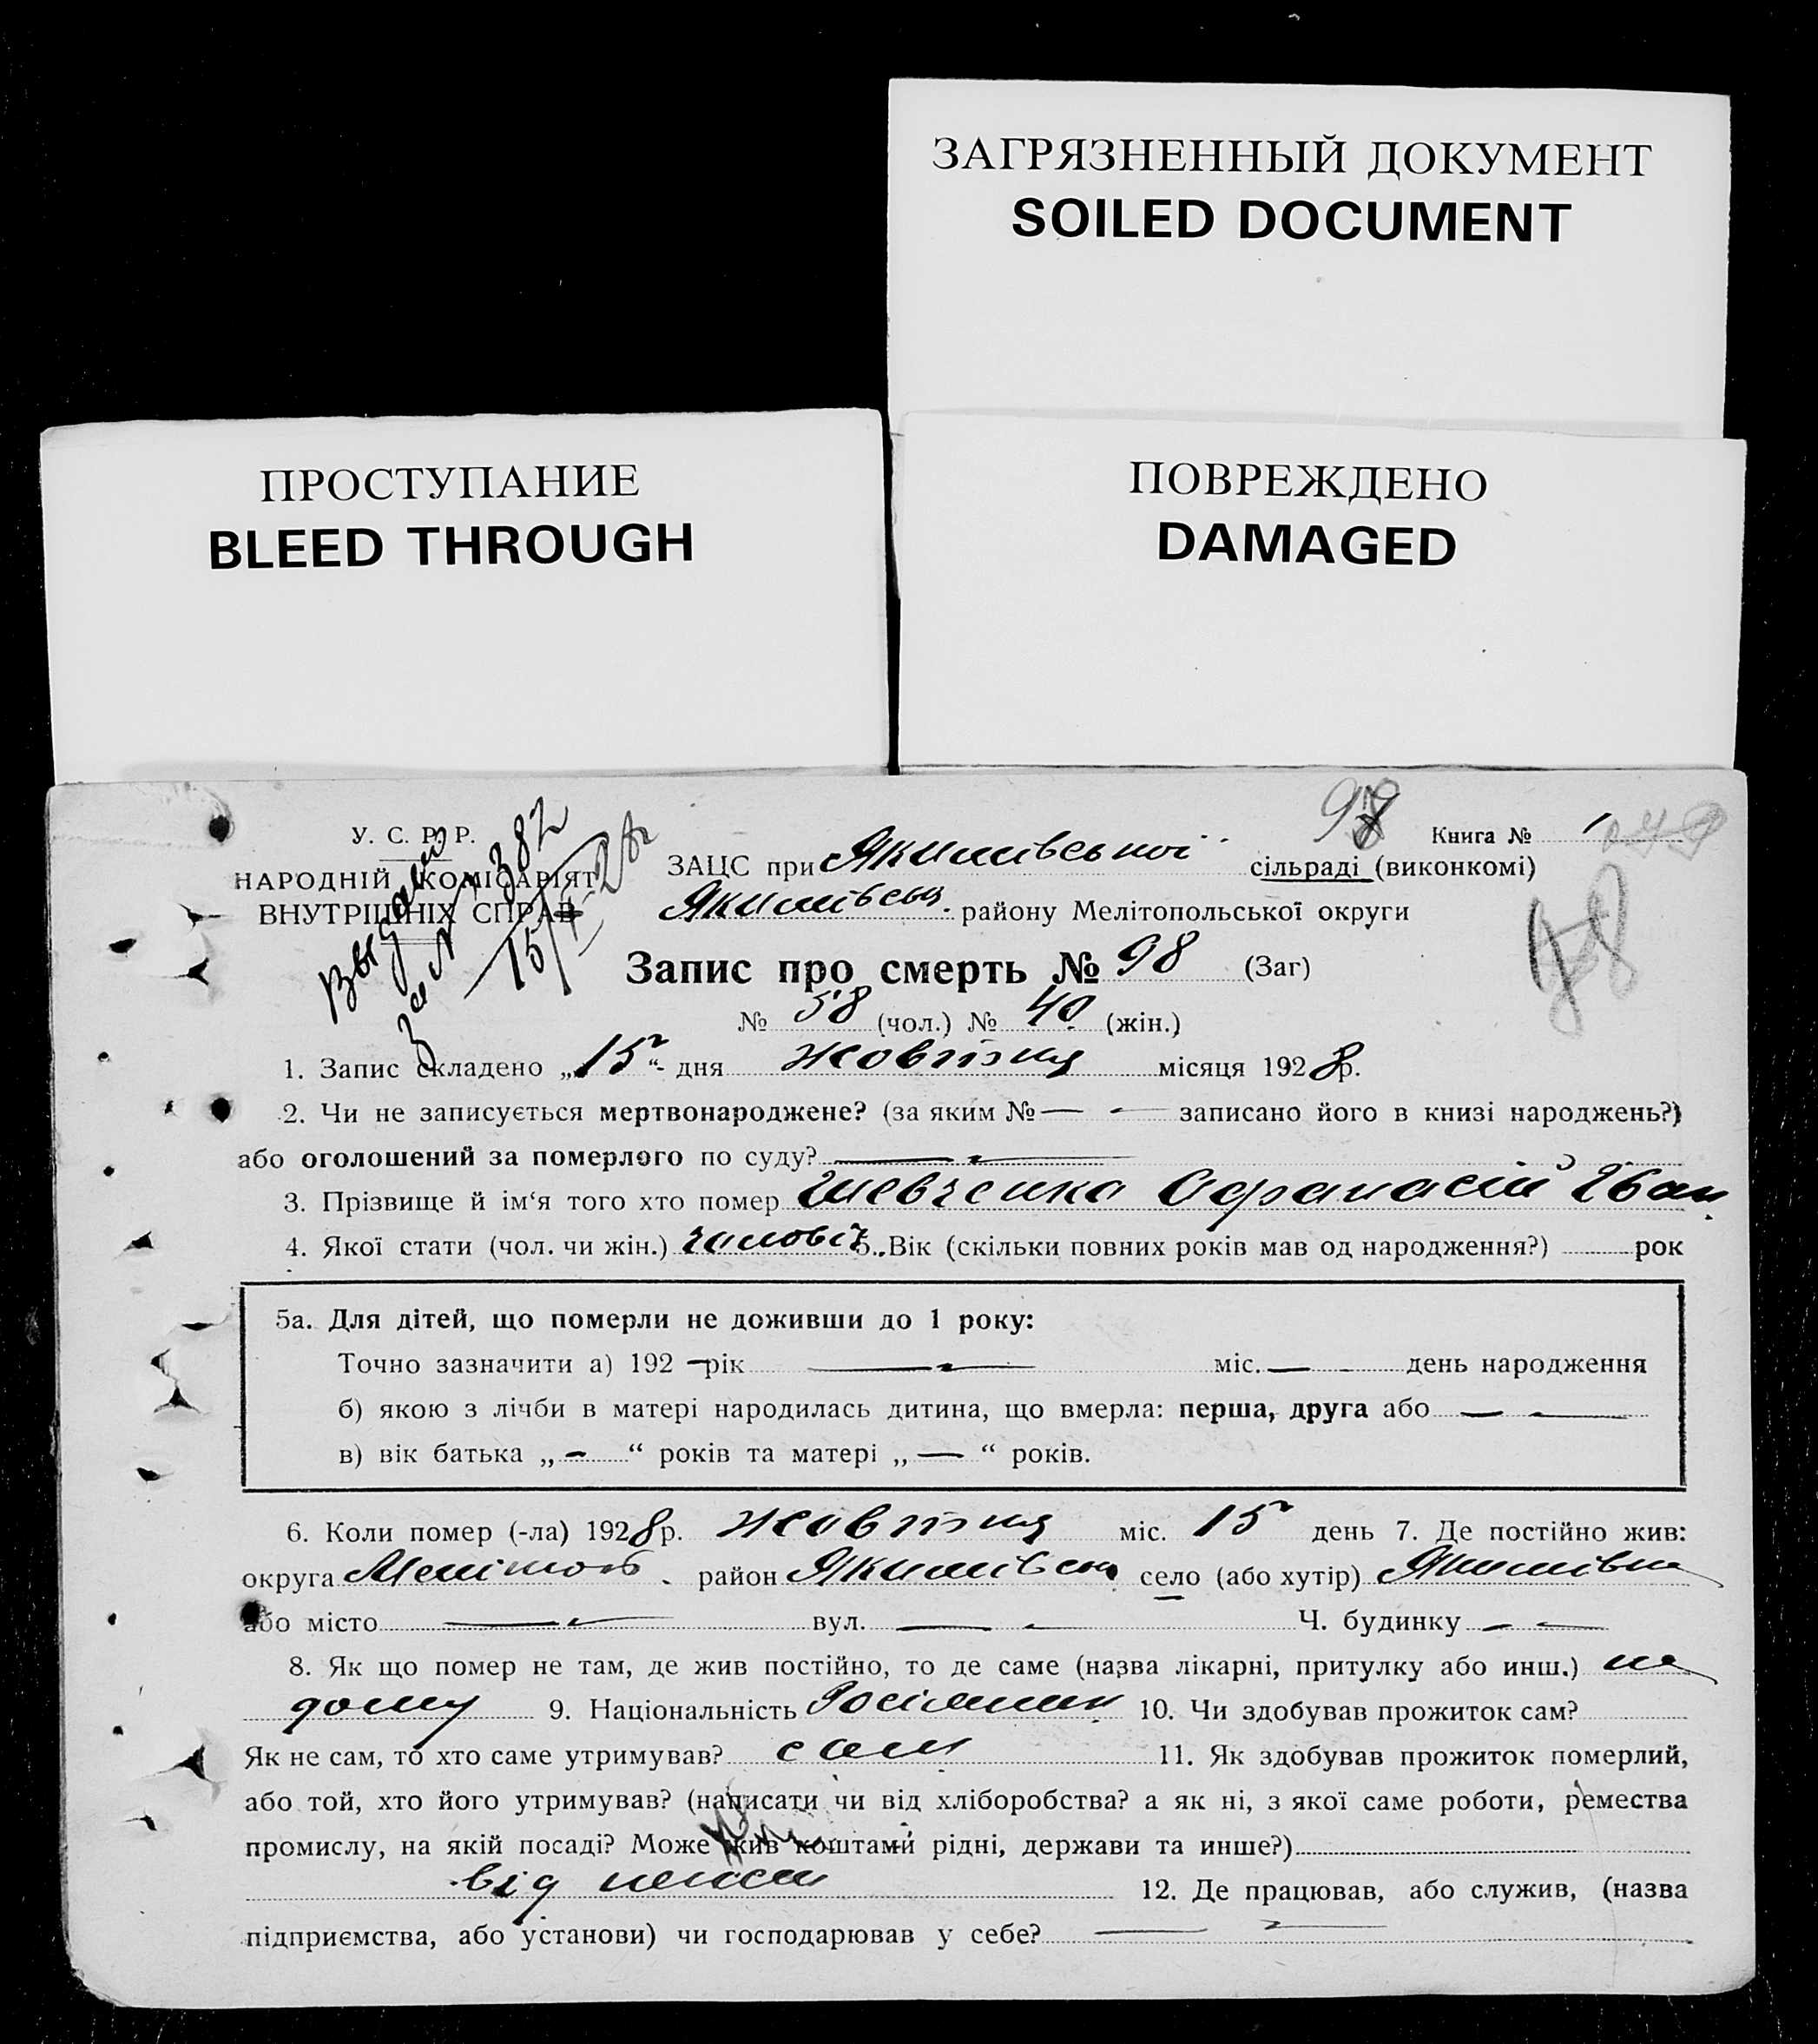 ЗАГРЯЗНЕННЫЙ ДОКУМЕНТ
SOILED DOCUMENT
ПРОСТУПАНИЕ
BLEED THROUGH
ПОВРЕЖДЕНО
DAMAGED
98
Книга № 1
У. С. Р. Р.
НАРОДНІЙ КОМІСАРІЯТ
ВНУТРІШНІХ СПРАВ
за № 382
ЗАЦС при Якимівської сільраді (виконкомі)
Якимівськ. району Мелітопольської округи
98
Запис про смерть № 98 (Заг)
№ 58 (чол.) № 40 (жін.)
1. Запис складено „15“ дня жовтня місяця 1928р.
2. Чи не записується мертвонароджене? (за яким № — записано його в книзі народжень?)
або оголошений за померлого по суду? —
3. Прізвище й ім‘я того хто помер Шевченко Афанасій Іван.
4. Якої стати (чол. чи жін.) чоловіч. 5. Вік (скільки повних років мав од народження?) рок
5а. Для дітей, що померли не доживши до 1 року:
Точно зазначити а) 192 — рік — міс. — день народження
б) якою з лічби в матері народилась дитина, що вмерла: перша, друга або —
в) вік батька „ — “ років та матері „ — “ років.
6. Коли помер (-ла) 1928р. жовтня міс. 15 день 7. Де постійно жив:
округа Мелітоп. район Якимівськ. село (або хутір) Якимівка
або місто — вул. — Ч. будинку —
8. Як що помер не там, де жив постійно, то де саме (назва лікарні, притулку або инш.) на
дому 9. Національність Росіянин 10. Чи здобував прожиток сам?
Як не сам, то хто саме утримував? сам 11. Як здобував прожиток померлий,
або той, хто його утримував? (написати чи від хліборобства? а як ні, з якої саме роботи, ремества
промислу, на якій посаді? Може жив коштами рідні, держави та инше?)
від 12. Де працював, або служив, (назва
підприємства, або установи) чи господарював у себе? —